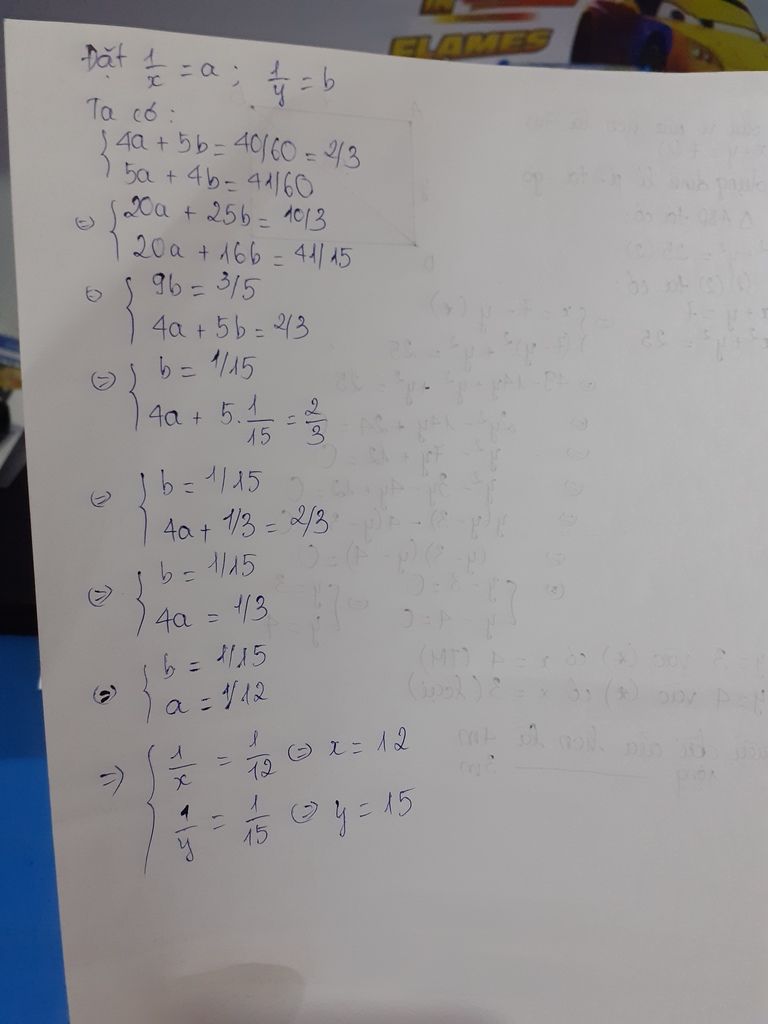 IN
FLAMES
Đặt 1/x = a ; 1/y = b
Ta có:
{ 4a + 5b = 40/60 = 2/3
5a + 4b = 41/60
⇔ { 20a + 25b = 10/3
20a + 16b = 41/15
⇔ { 9b = 3/5
4a + 5b = 2/3
⇔ { b = 1/15
4a + 5.1/15 = 2/3
⇔ { b = 1/15
4a + 1/3 = 2/3
⇔ { b = 1/15
4a = 1/3
⇔ { b = 1/15
a = 1/12
⇒ { 1/x = 1/12 ⇔ x = 12
1/y = 1/15 ⇔ y = 15